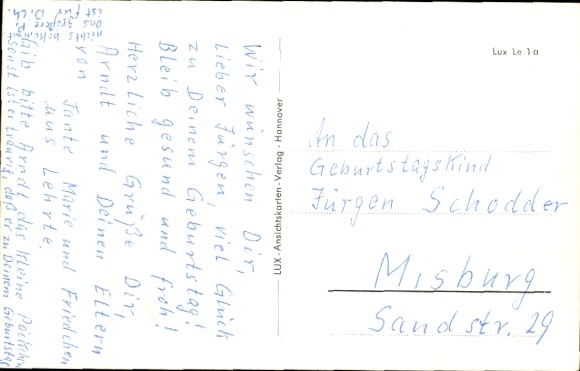 Wir wünschen Dir,
lieber Jürgen, viel Glück
zu Deinem Geburtstag!
Bleib gesund und froh!
Herzliche Grüße Dir,
Arndt und Deinen Eltern
von
Tante Marie und Friedchen
aus Lehrte.
Gib bitte Arndt das kleine Päckchen
sonst ist er traurig, daß er zu Deinem Geburtstag
nichts bekommt
Das größere P.
ist für D. Ch.
LUX - Ansichtskarten - Verlag - Hannover
Lux Le 1a
An das
Geburtstagskind
Jürgen Schodder
Misburg
Sandstr. 29